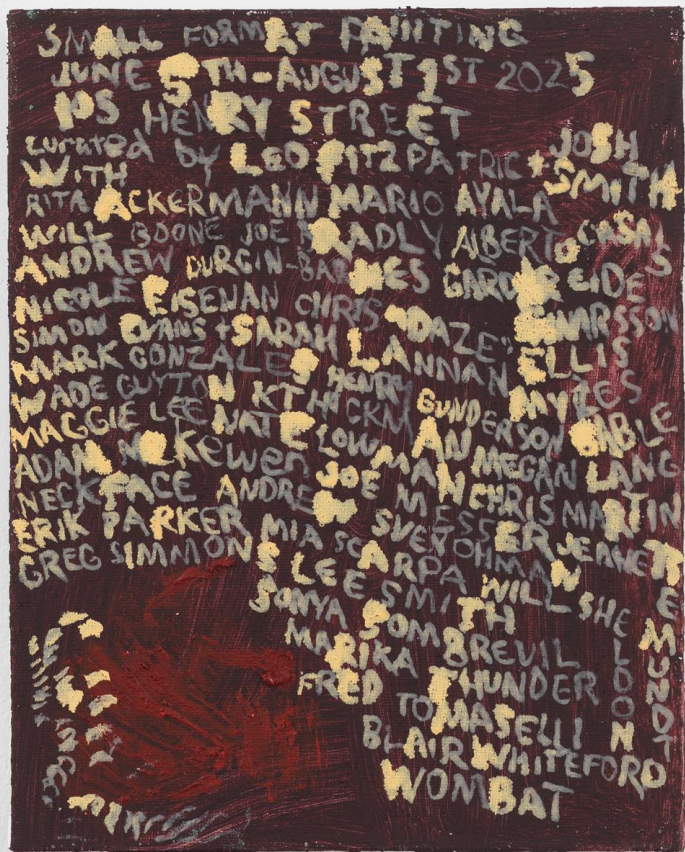 SMALL FORMAT PAINTING
JUNE 5TH-AUGUST 1ST 2025
105 HENRY STREET
curated by LEO FITZPATRICK + JOSH SMITH
WITH
RITA ACKERMANN MARIO AYALA
WILL BOONE JOE BRADLY ALBERTO CASAIS
ANDREW DURGIN-BARNES GARDAR EIDE EINARSSON
NICOLE EISENAN CHRIS "DAZE" ELLIS
SIMON EVANS + SARAH LANNAN MYLES
MARK GONZALES HENRY GUNDERSON GABLE
WADE GUYTON KT HICKMAN MEGAN LANG
MAGGIE LEE NATE LOWMAN CHRIS MARTIN
ADAM McKEWEN JOE MESSER JEANETTE MUNDT
NECKFACE ANDREW
ERIK PARKER MIA SCARPA SVEN OHMAN WILL SHELDON
GREG SIMMONS LEE SMITH
SONYA SOMBREVIL
MARIKA THUNDER
FRED TOMASELLI
BLAIR WHITEFORD
WOMBAT